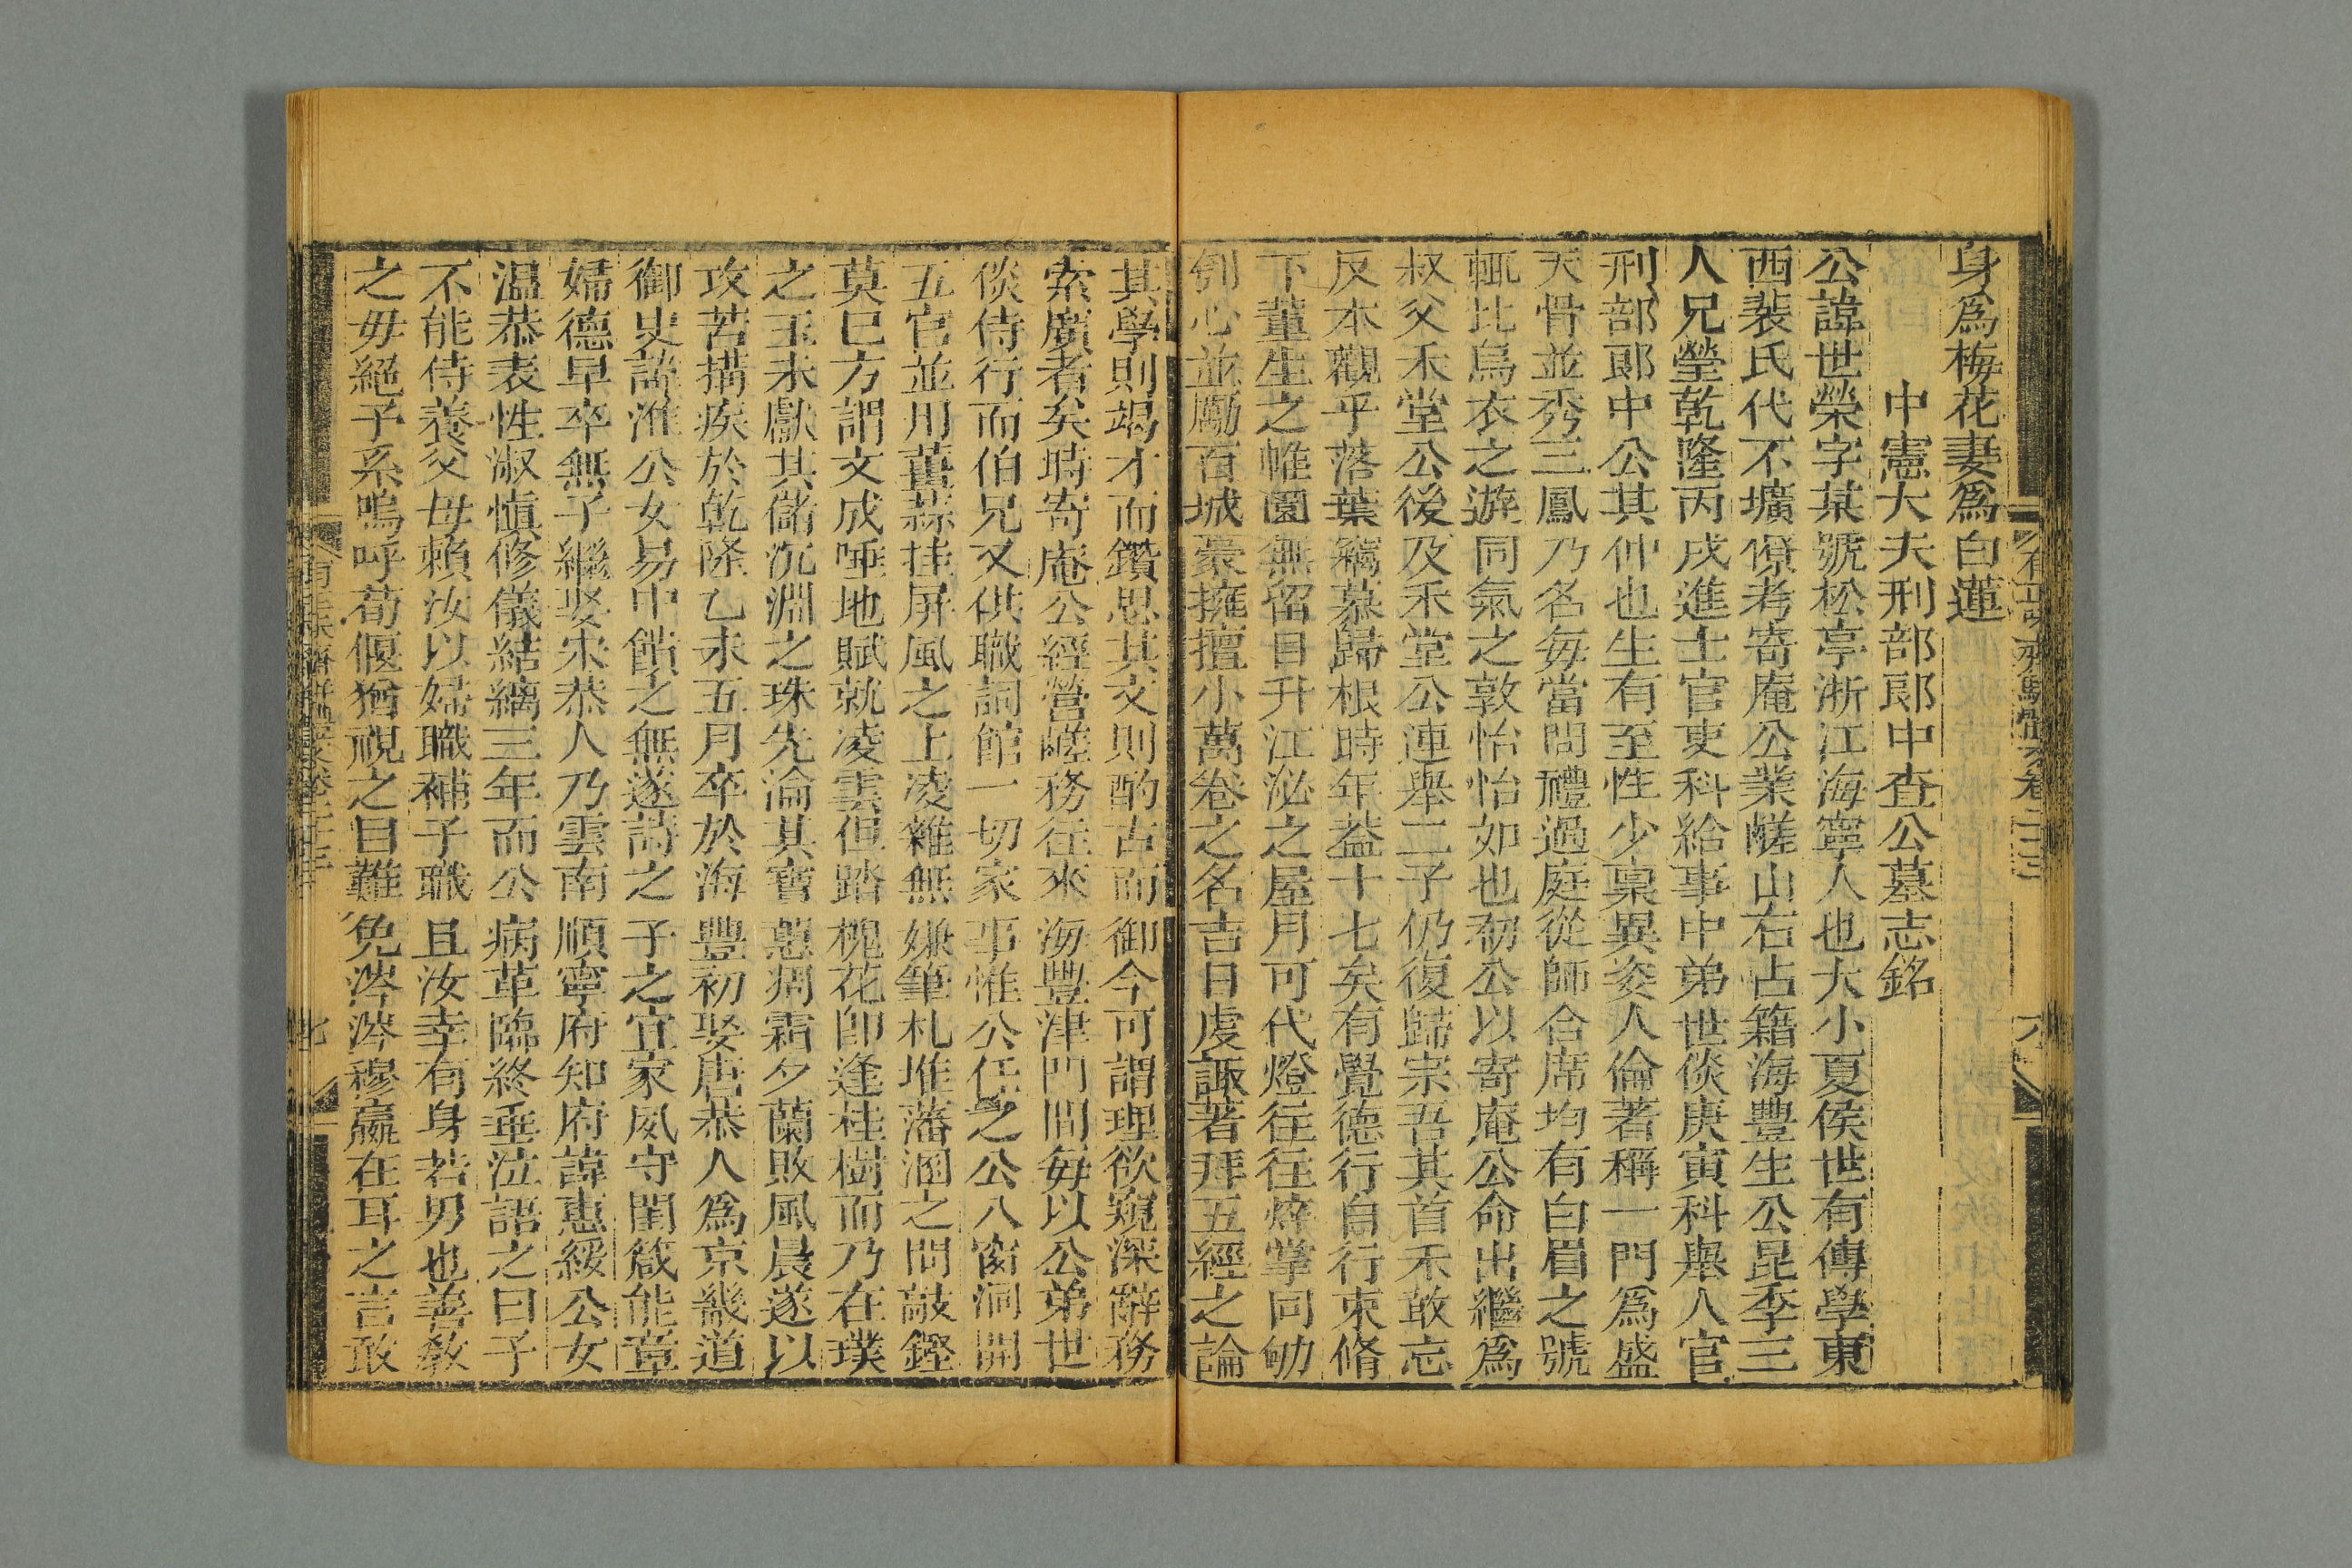 身爲梅花妻爲白蓮
中憲大夫刑部郞中查公墓志銘
公諱世榮字某號松亭浙江海寧人也大小夏侯世有傳學東
西裴氏代不壙僚考寄庵公業鹺山右占籍海豐生公昆季三
人兄瑩乾隆丙戌進士官吏科給事中弟世倓庚寅科舉人官
刑部郞中公其仲也生有至性少稟異姿人倫著稱一門爲盛
天骨並秀三鳳乃名每當問禮過庭從師合席均有白眉之號
輒比烏衣之遊同氣之敦怡怡如也初公以寄庵公命出繼爲
叔父禾堂公後及禾堂公連舉二子仍復歸宗吾其首禾敢忘
反本觀乎落葉竊慕歸根時年葢十七矣有覺德行自行束脩
下董生之帷園無留目升江泌之屋月可代燈往往焠掌同劬
刳心並勵百城豪擁擅小萬卷之名吉日虔諏著拜五經之論
其學則竭才而鑽思其文則酌古而御今可謂理欲窺深辭務
索廣者矣時寄庵公經營鹺務往來海豐津門間每以公弟世
倓侍行而伯兄又供職詞館一切家事惟公任之公八窗洞開
五官並用薑蒜挂屏風之上凌雜無嫌筆札堆藩溷之間敲鏗
莫已方謂文成唾地賦就凌雲但踏槐花卽逢桂樹而乃在璞
之玉未獻其儲沉淵之珠先淪其寶蕙凋霜夕蘭敗風晨遂以
攻苦搆疾於乾隆乙未五月卒於海豐初娶唐恭人爲京畿道
御史諱淮公女易中饋之無遂詩之子之宜家夙守閨箴能章
婦德早卒無子繼娶宋恭人乃雲南順寧府知府諱惠綏公女
溫恭表性淑愼修儀結縭三年而公病革臨終垂泣語之曰子
不能侍養父母賴汝以婦職補子職且汝幸有身若男也善敎
之毋絕予系嗚呼荀偃猶視之目難免涔涔穆嬴在耳之言敢